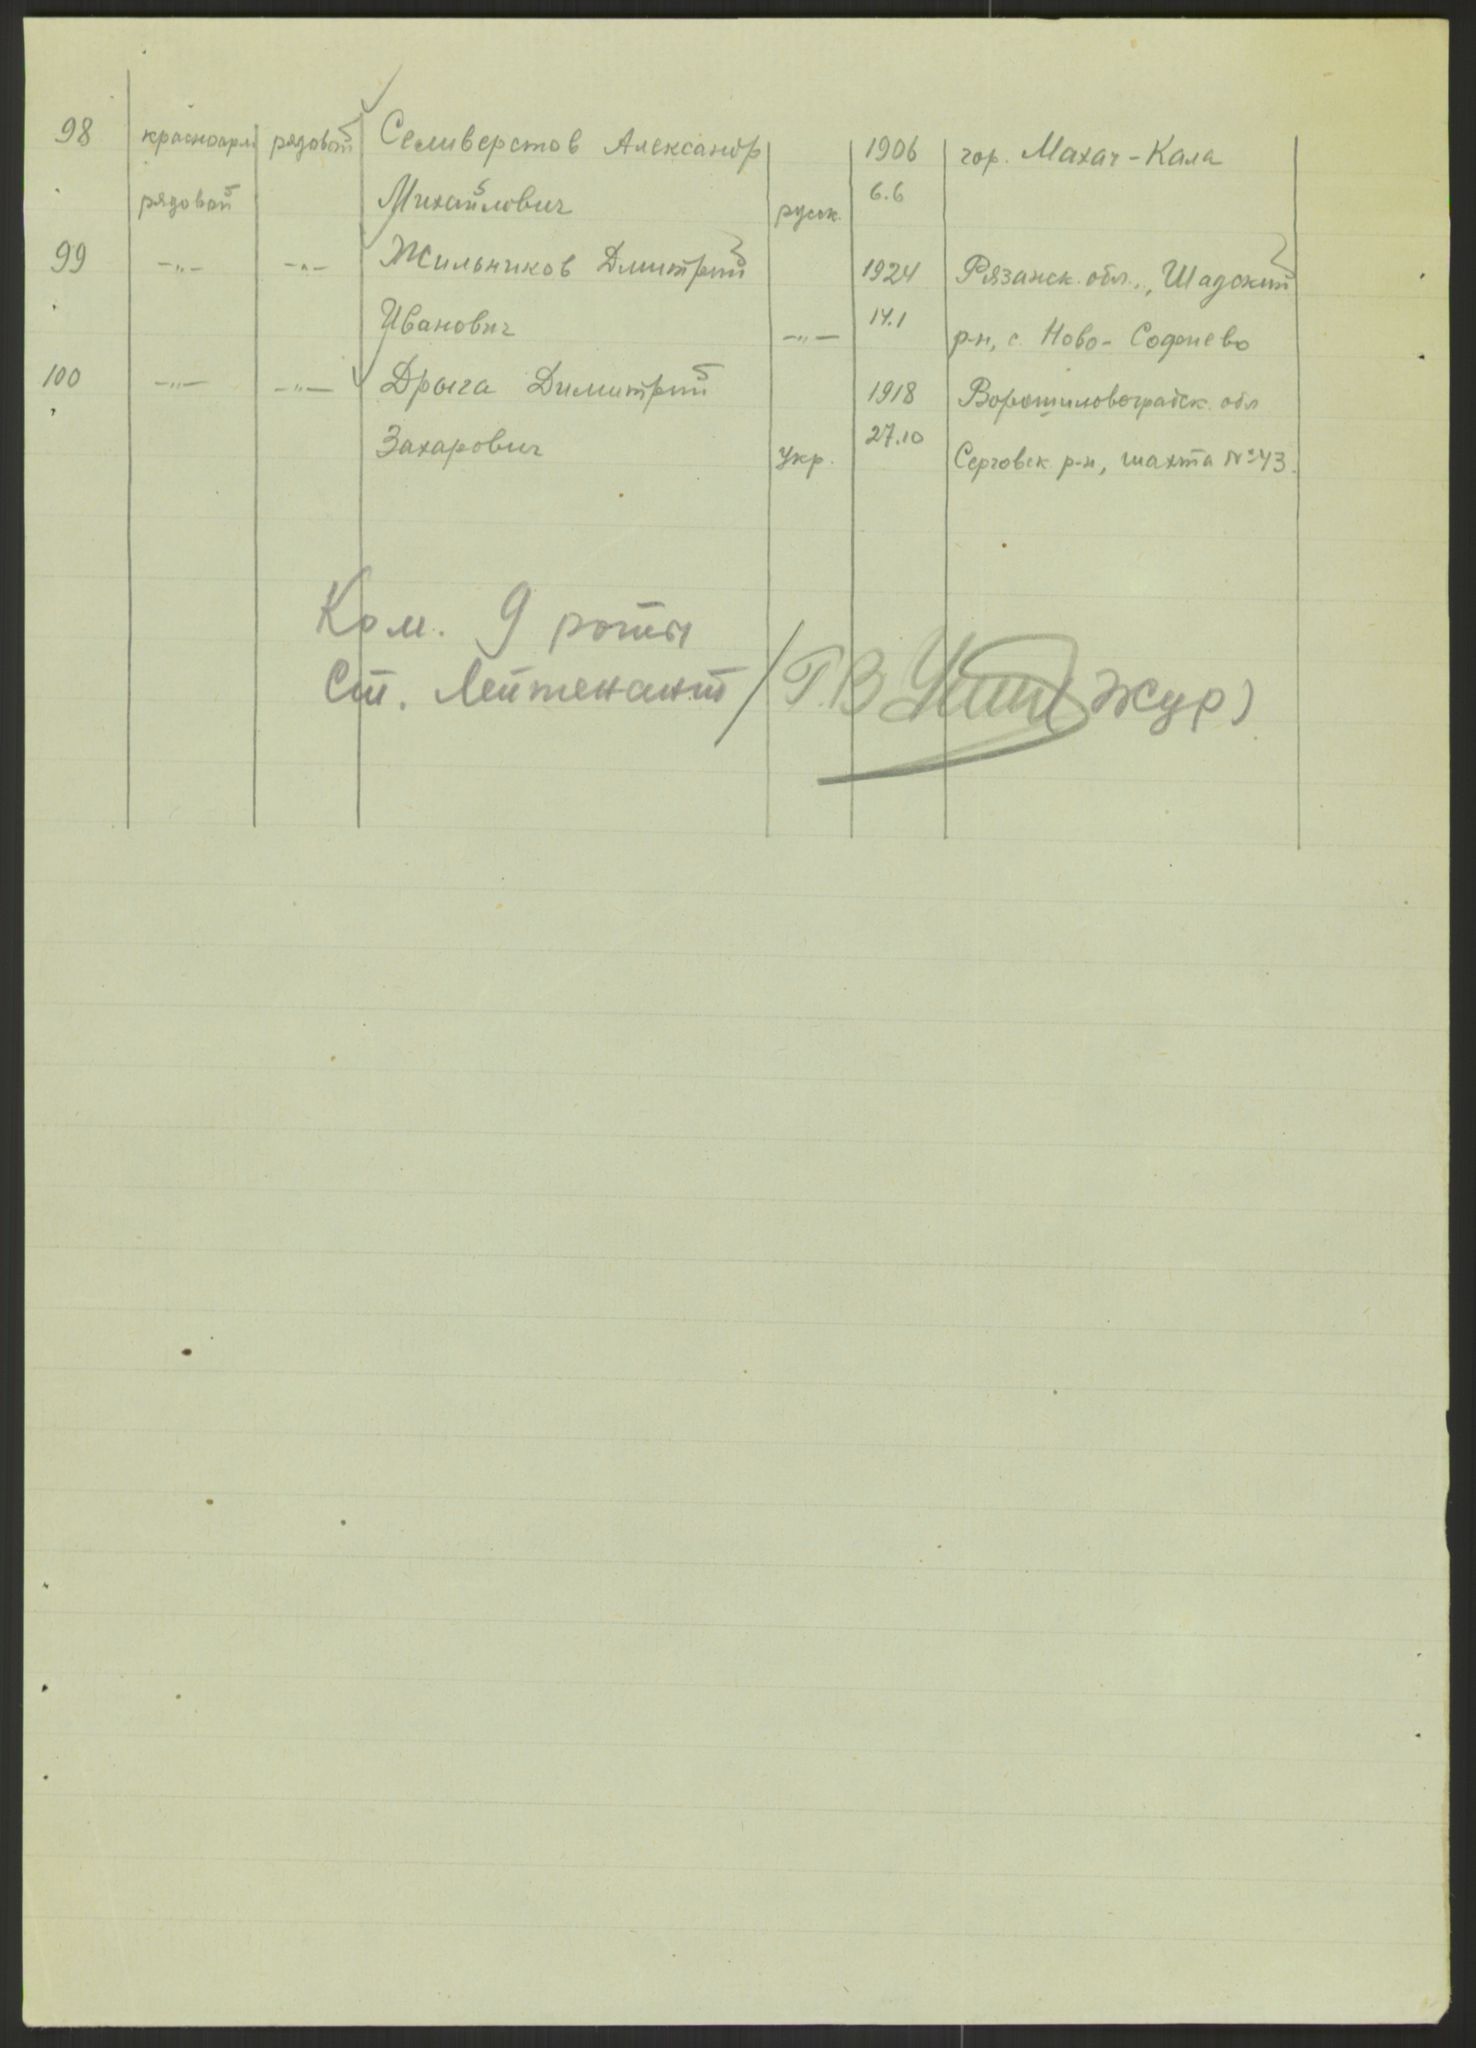 98 красноарм. рядовой Селиверстов Александр 1906 гор. Махач-Кала
рядовой Михайлович русск. 6.6
99 -"- -"- Жильчиков Дмитрий 1924 Рязанск. обл., Шадский
Иванович -"- 14.1 р-н, с. Ново-Софиево
100 -"- -"- Дрыга Димитрий 1918 Ворошиловоградск. обл
Захарович Укр. 27.10 Серговск. р-н, шахта №43.
Ком. 9 роты
Ст. Лейтенант / Г.В. (Жур)